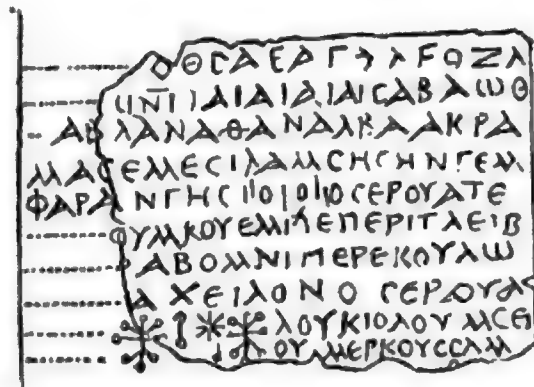 ΘϹΑΕΑΓ
ΙΑΙΑΙΑΙΑΙϹΑΒΑΩΘ
ΑΒΛΑΝΑΘΑΝΑΛΚΑΑΚΡΑ
ΜΑϹΕΜΕϹΙΛΑΜϹΗΓΗΝΓΕΜ
ΦΑΡΑΝΓΗϹΙΙΟΙΟΙΙΟϹΕΡΟΥΑΤΕ
ΟΥΜΚΟΥΕΜΙΛΕΠΕΡΙΤΛΕΙΒ
ΡΑΒΟΜΝΙΠΕΡΕΚΟΥΛΩ
ΑΧΕΙΛΟΝΟϹΕΡΟΥΑϹ
ΛΟΥΚΙΟΛΟΥΜϹΕΗ
ΟΥΜΕΡΚΟΥϹϹΑΜ